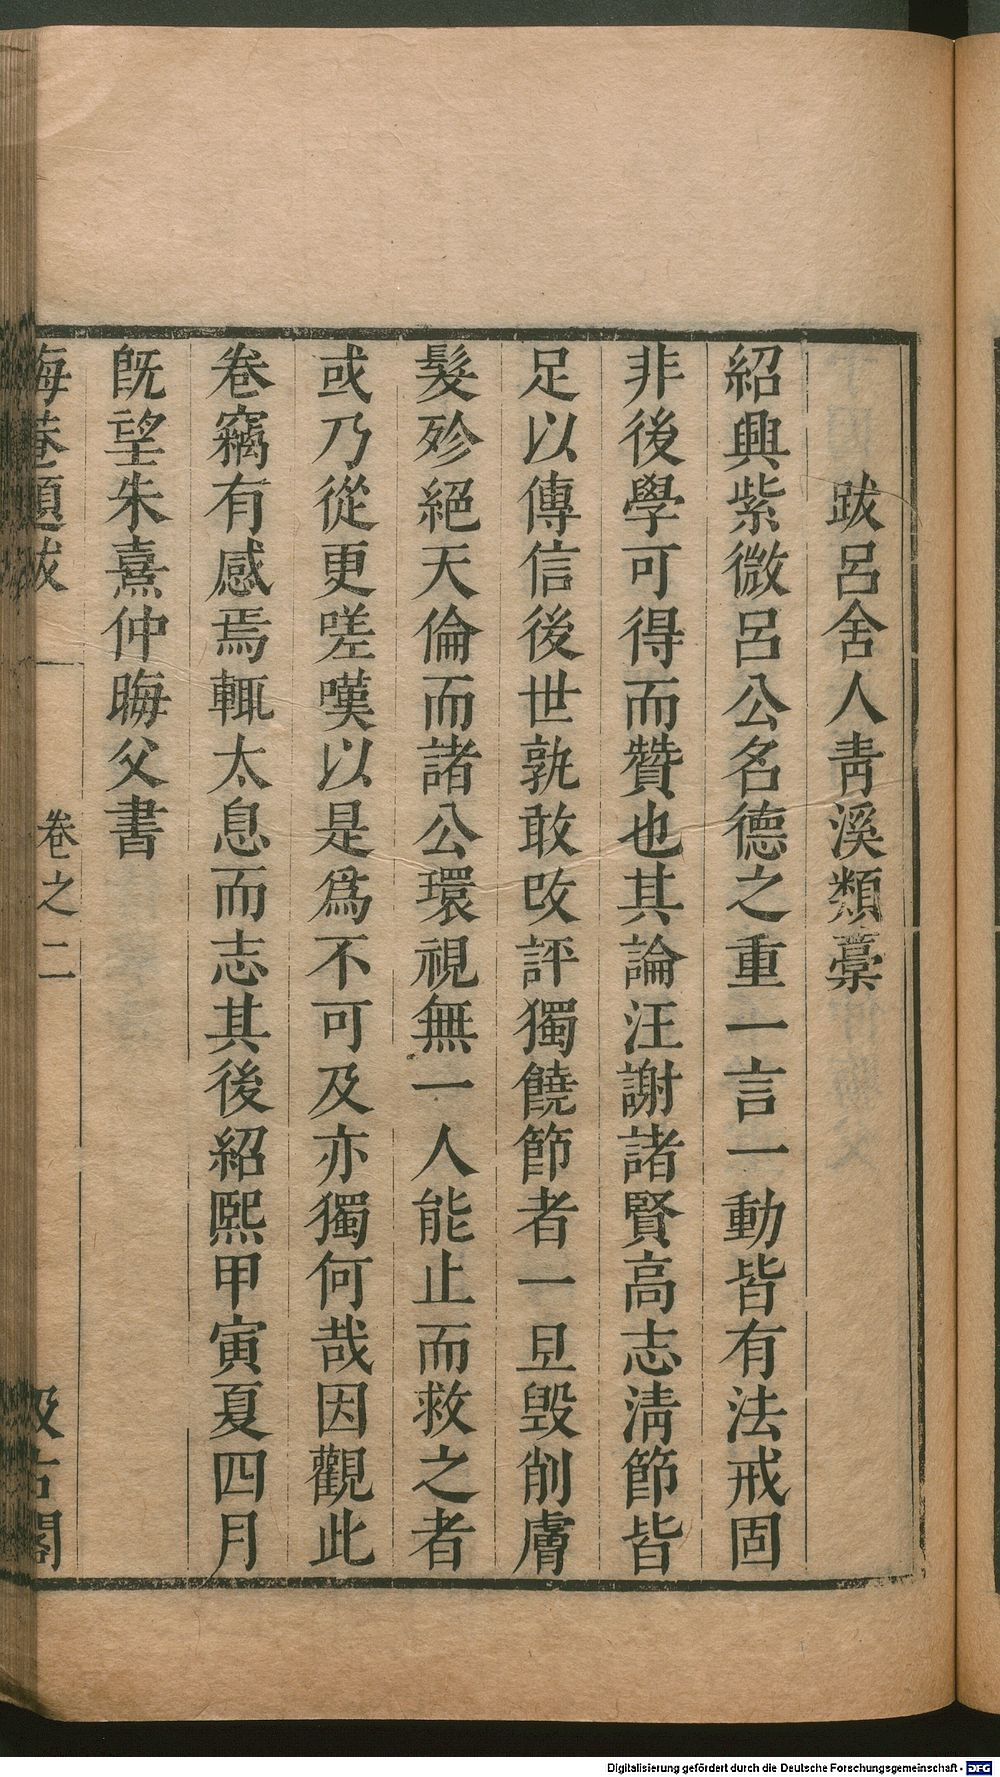 跋呂舍人青溪類藁
紹興紫微呂公名德之重一言一動皆有法戒固
非後學可得而贊也其論汪謝諸賢高志清節皆
足以傳信後世孰敢改評獨饒節者一旦毀削膚
髮殄絕天倫而諸公環視無一人能止而救之者
或乃從更嗟嘆以是爲不可及亦獨何哉因觀此
卷竊有感焉輒太息而志其後紹熙甲寅夏四月
旣望朱熹仲晦父書
晦菴題跋 卷之二 汲古閣
Digitalisierung gefördert durch die Deutsche Forschungsgemeinschaft - DFG